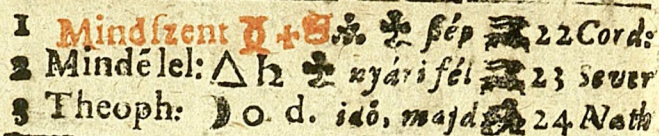 1 Mindſzent ♊ ſép 22 Cord:
2 Mindélel: △ ♄ nyári fél 23 Sever
3 Theoph: ☽ o. d. idő, majd 24 Nath